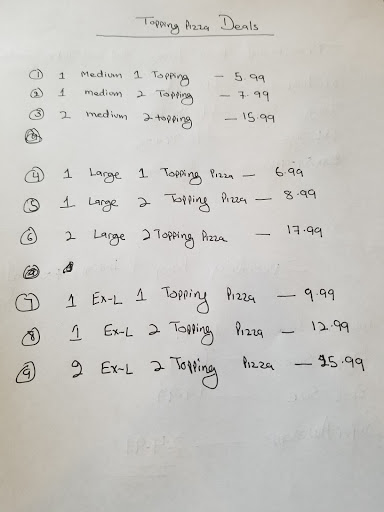 Topping Pizza Deals
① 1 Medium 1 Topping — 5.99
② 1 medium 2 Topping — 7.99
③ 2 medium 2 topping — 15.99
④ 1 Large 1 Topping Pizza — 6.99
⑤ 1 Large 2 Topping Pizza — 8.99
⑥ 2 Large 2 Topping Pizza — 17.99
⑦ 1 Ex-L 1 Topping Pizza — 9.99
⑧ 1 Ex-L 2 Topping Pizza — 12.99
⑨ 2 Ex-L 2 Topping Pizza — 25.99